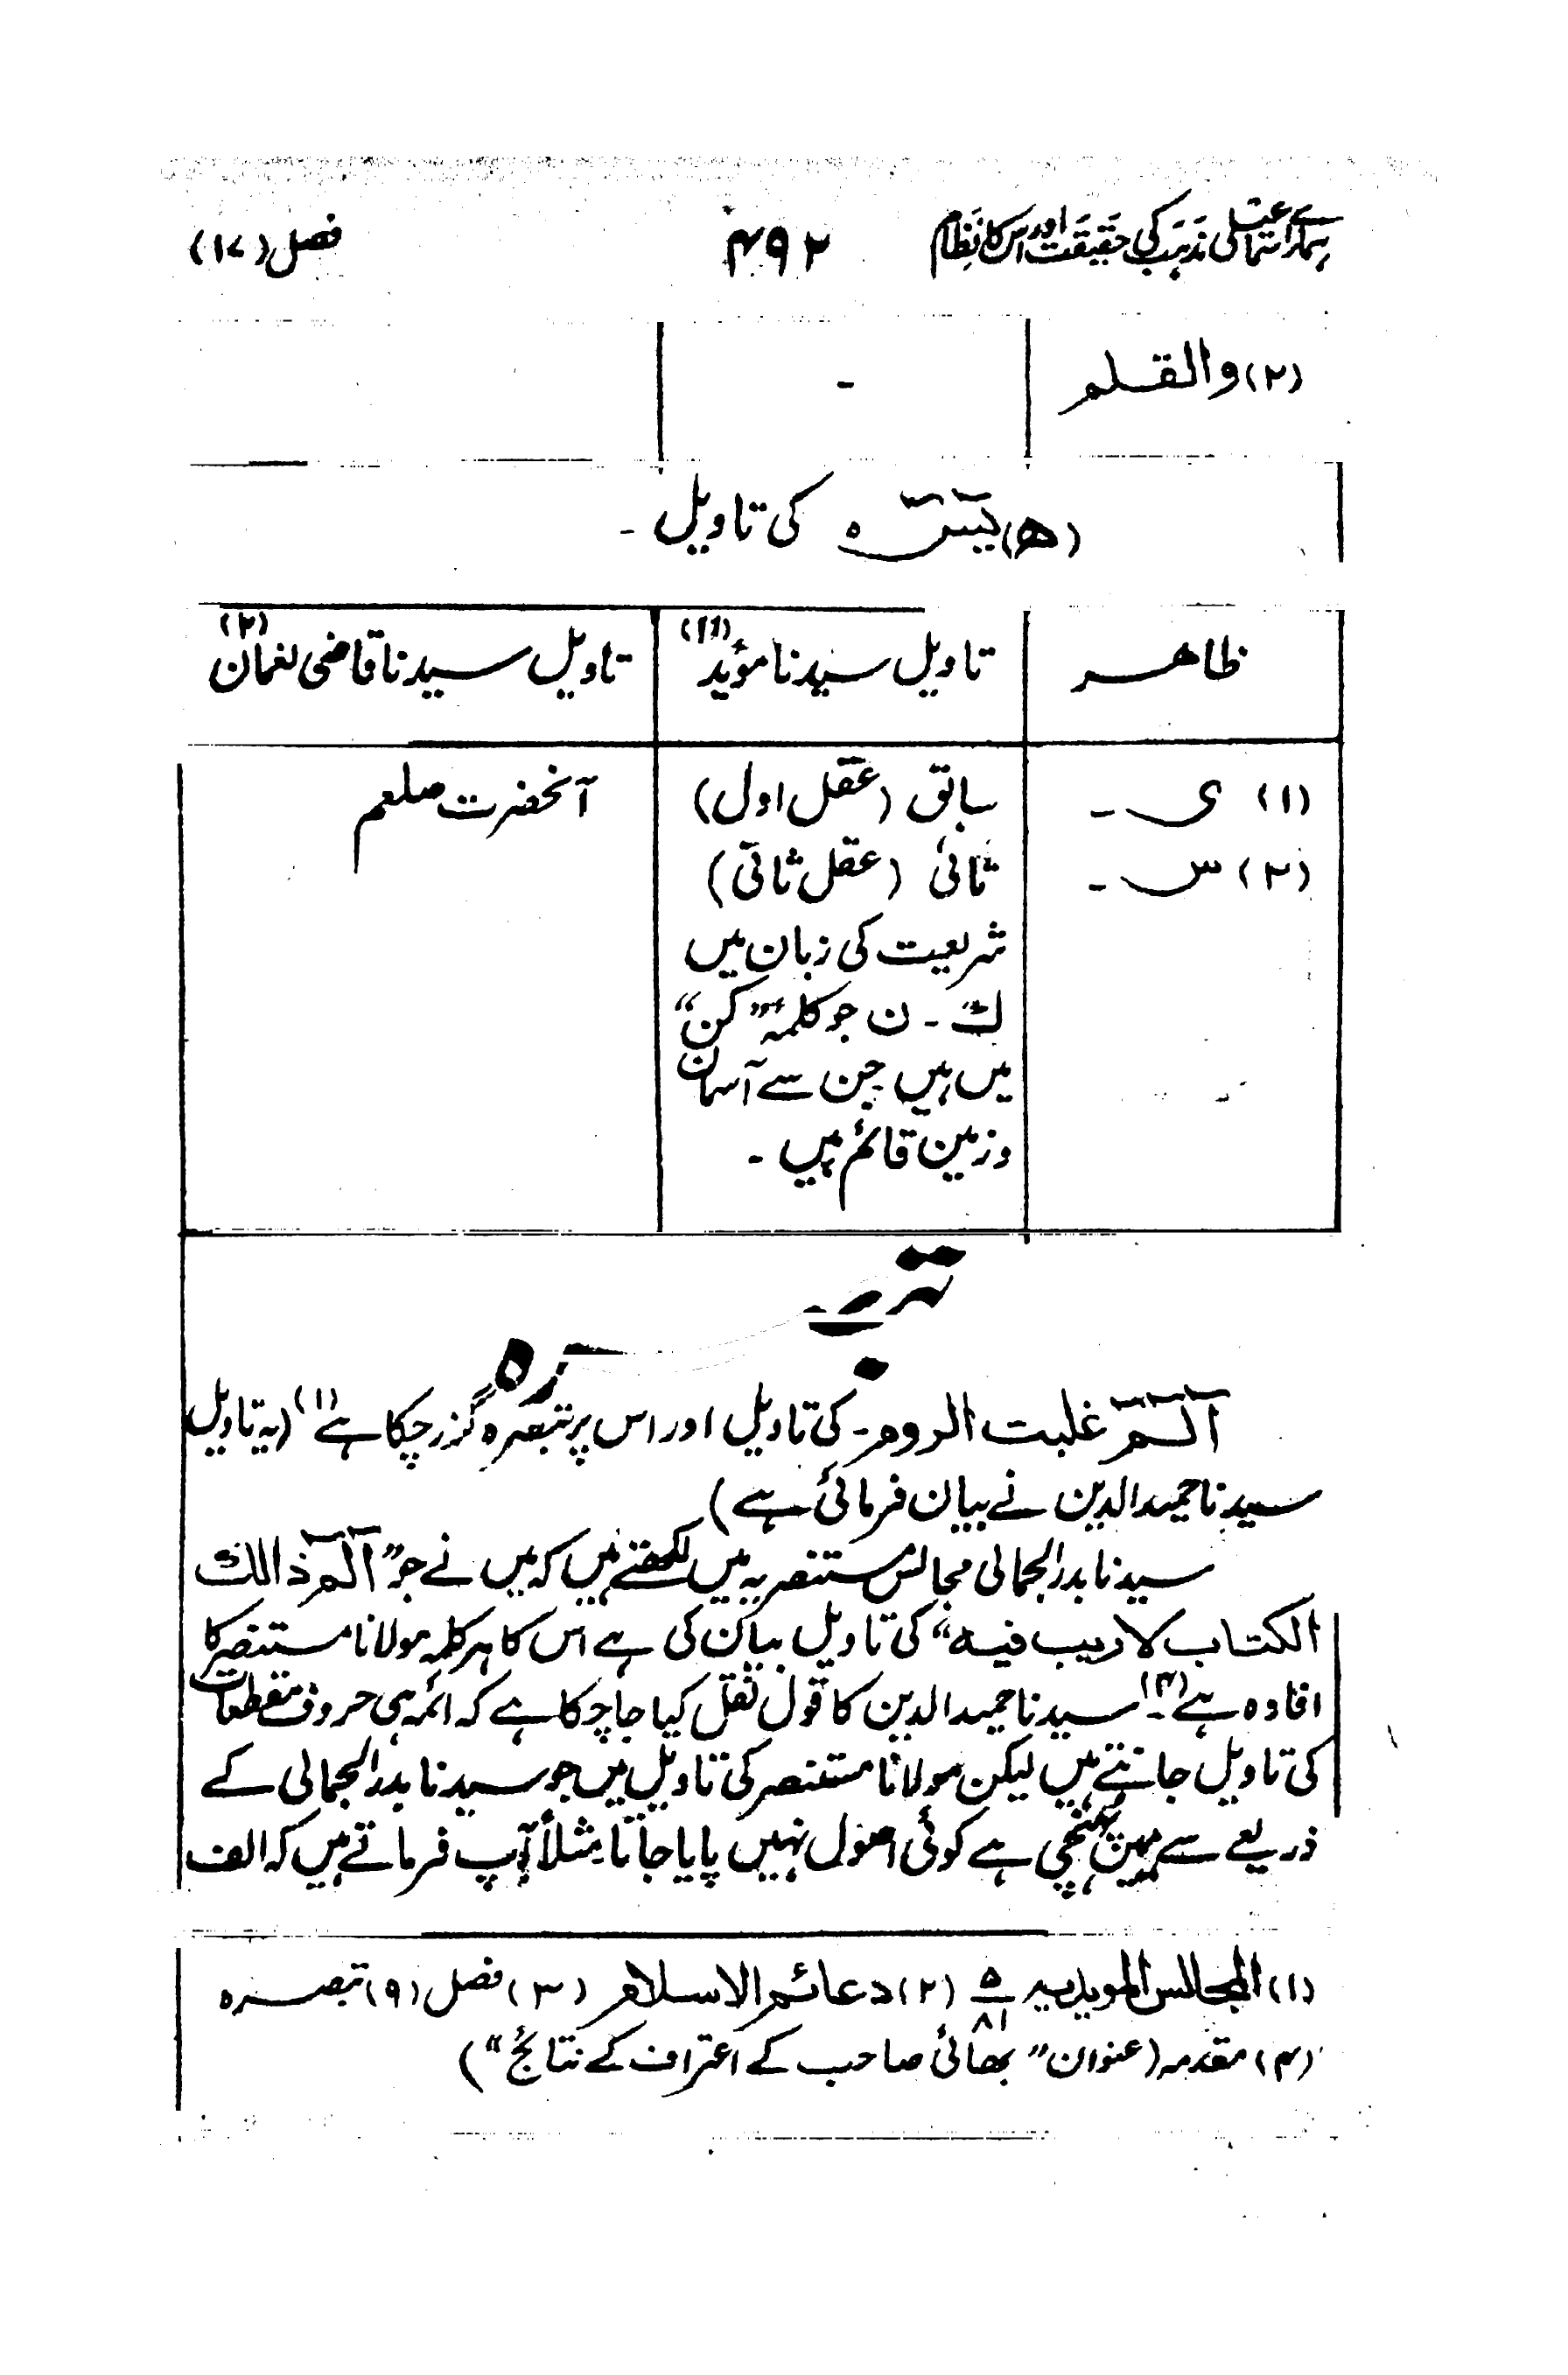 ہمارے اسماعیلی مذہب کی حقیقت اور اس کا نظام ۴۹۲ فصل (۱۷)
(۲) والقلم -
(ھ) یٰسٓ ہ کی تاویل -
ظاھر تاویل سیدنا مؤید (۱) تاویل سیدنا قاضی نعمان (۲)
(۱) ی - سابق (عقل اول) آنحضرت صلعم
(۲) س - ثانی (عقل ثانی)
شریعت کی زبان میں
ك - ن جو کلمۂ "کن"
میں ہیں جن سے آسمان
و زمین قائم ہیں -
تبصرہ
آلٓمٓ غلبت الروم - کی تاویل اور اس پر تبصرہ گزر چکا ہے (۱) (یہ تاویل
سیدنا حمید الدین نے بیان فرمائی ہے)
سیدنا بدر الجمالی مجالس مستنصریہ میں لکھتے ہیں کہ میں نے جو "آلٓمٓ ذالك
الکتاب لا ریب فیه" کی تاویل بیان کی ہے اس کا ہر کلمہ مولانا مستنصر کا
افادہ ہے (۴) - سیدنا حمید الدین کا قول نقل کیا جا چکا ہے کہ ائمہ ہی حروف مقطعات
کی تاویل جانتے ہیں لیکن مولانا مستنصر کی تاویل میں جو سیدنا بدر الجمالی کے
ذریعے سے ہمیں پہنچی ہے کوئی اصول نہیں پایا جاتا مثلاً آپ فرماتے ہیں کہ الف
(۱) المجالس المویدیہ ۵/۸۱ (۲) دعائم الاسلام (۳) فصل (۹) تبصرہ
(۴) مقدمہ (عنوان "بھائی صاحب کے اعتراف کے نتائج")